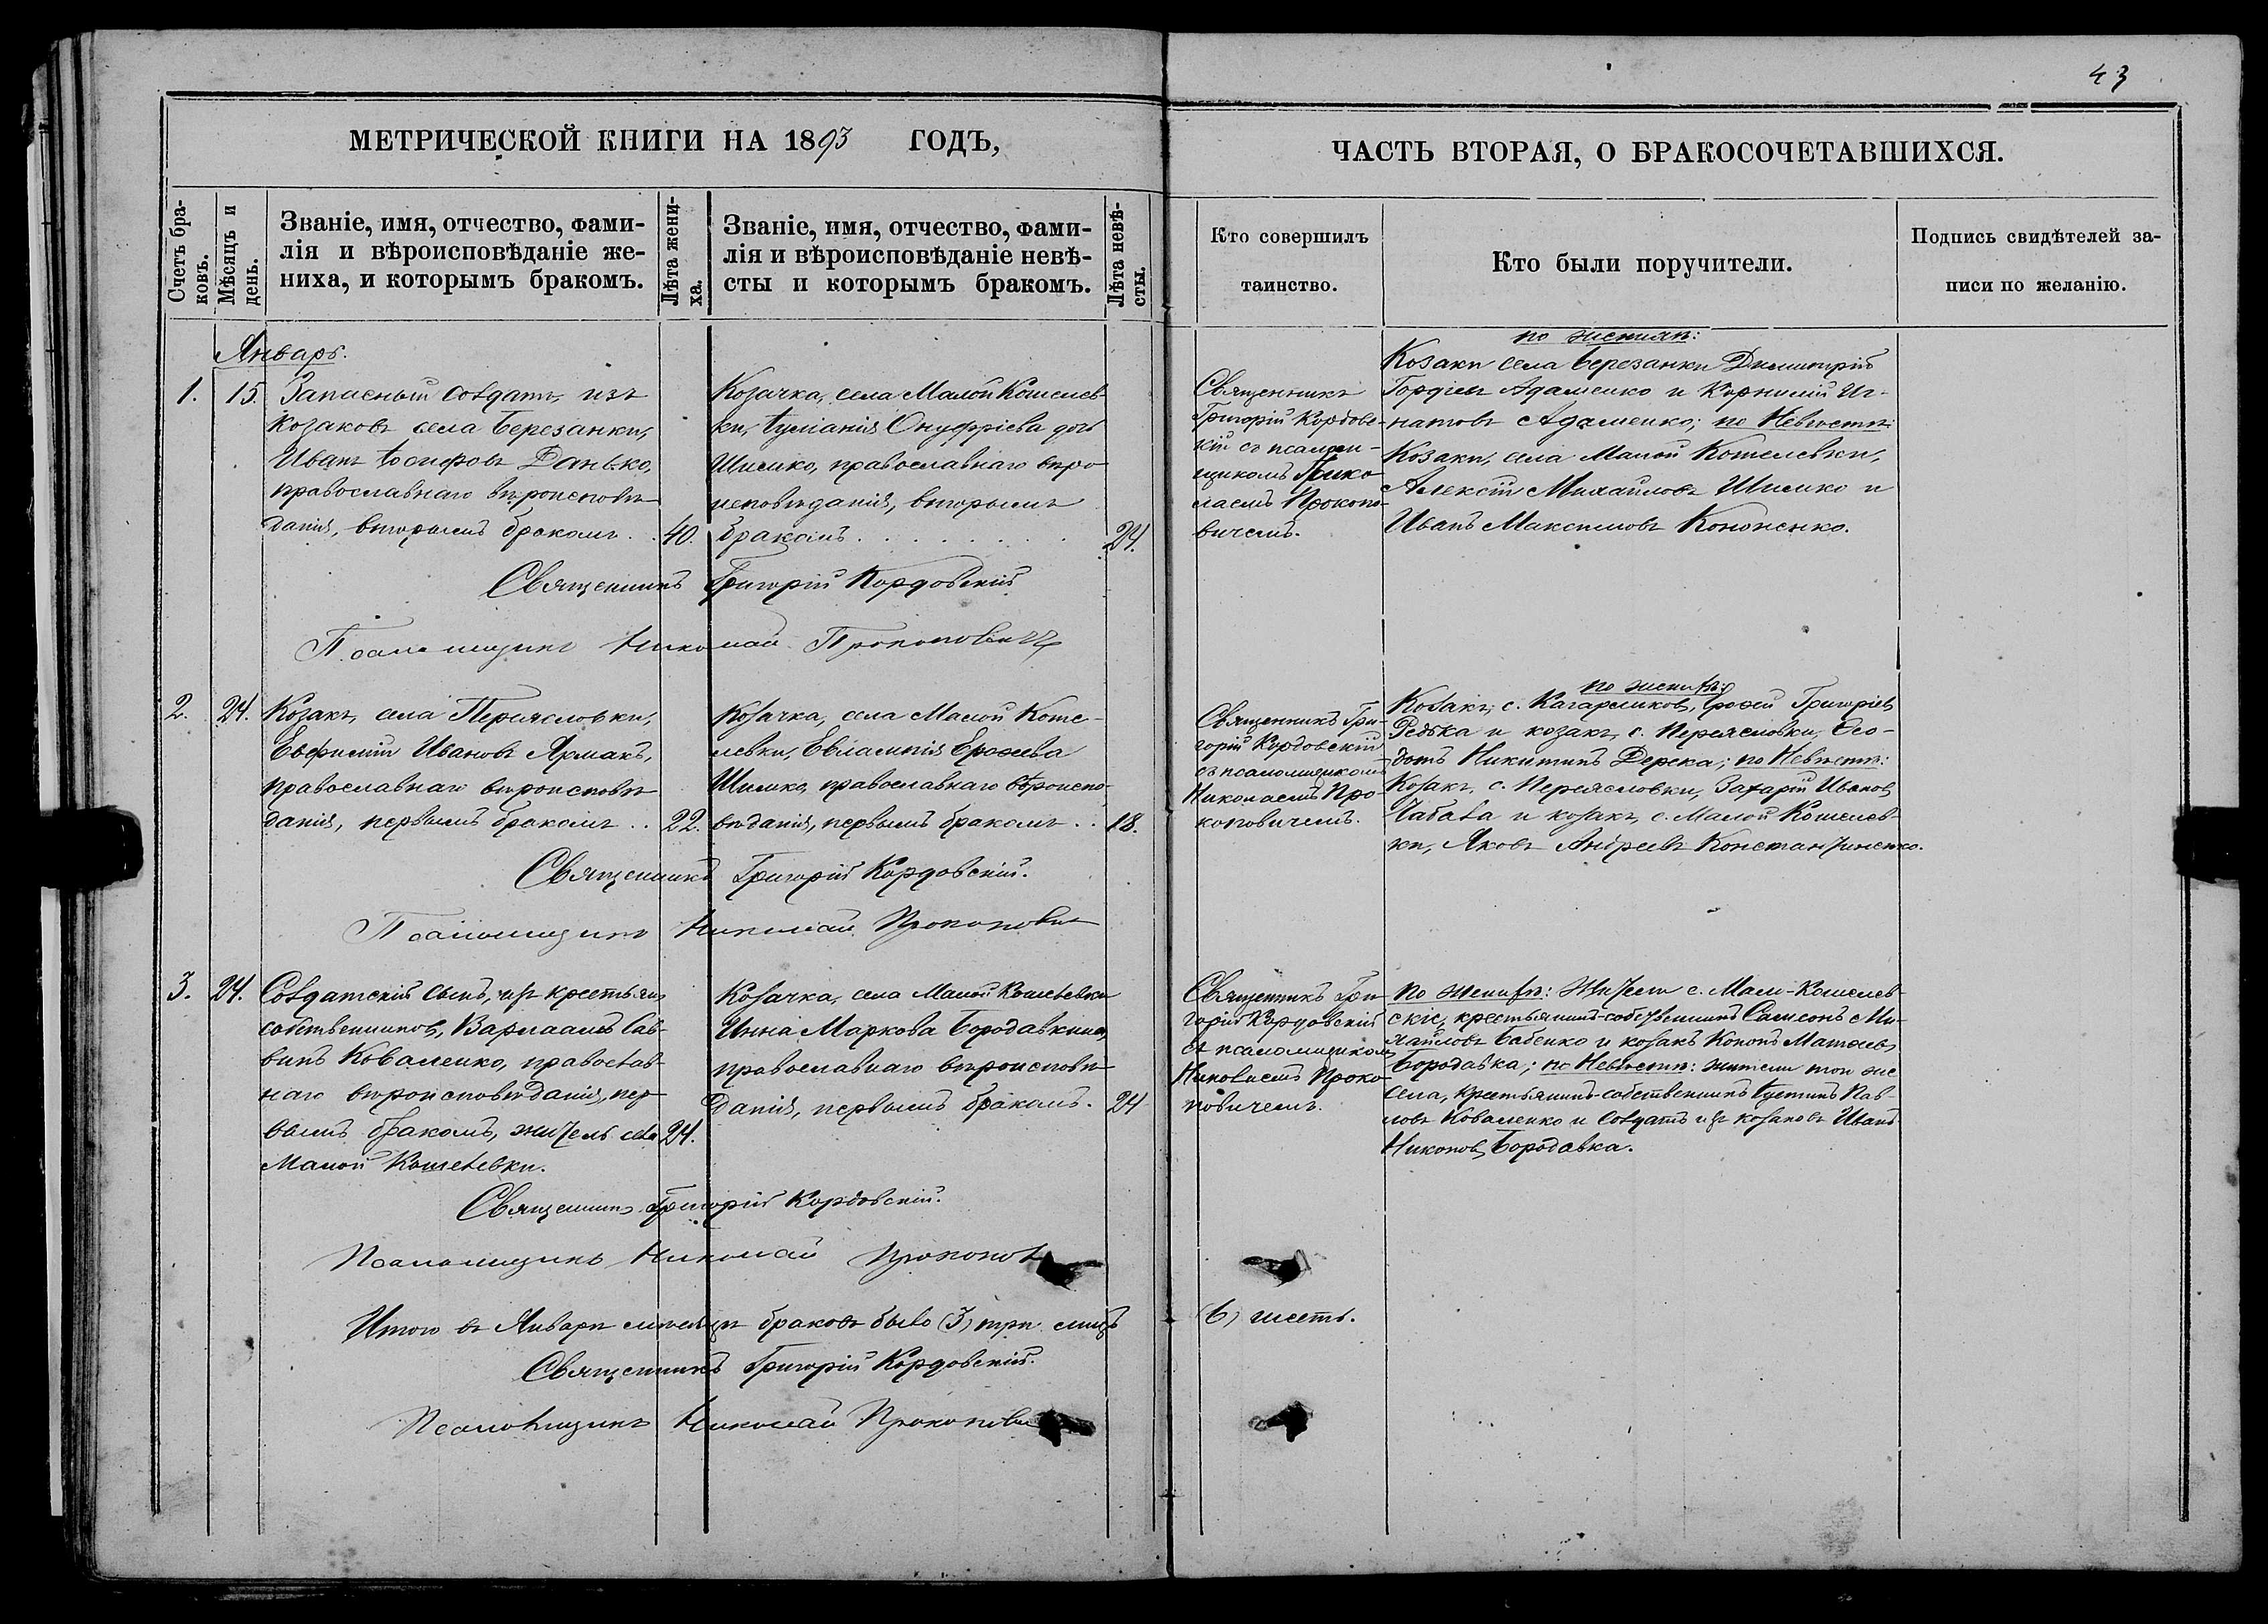 43
МЕТРИЧЕСКОЙ КНИГИ НА 1893 ГОДЪ,
Счетъ бра-
ковъ.
Мѣсяцъ и
день.
Званіе, имя, отчество, фами-
лія и вѣроисповѣданіе же-
ниха, и которымъ бракомъ.
Лѣта жени-
ха.
Званіе, имя, отчество, фами-
лія и вѣроисповѣданіе невѣ-
сты и которымъ бракомъ.
Лѣта невѣ-
сты.
ЧАСТЬ ВТОРАЯ, О БРАКОСОЧЕТАВШИХСЯ.
Кто совершилъ
таинство.
Кто были поручители.
Подпись свидѣтелей за-
писи по желанію.
Январь.
1. 15. Запасный солдатъ, изъ
козаковъ села Березанки,
Иванъ Іосифовъ Данько,
православнаго вѣроисповѣ-
данія, вторымъ бракомъ . . 40.
Козачка, села Малой Кошелев-
ки, Іуліанія Онуфріева дочь
Шишко, православнаго вѣро-
исповѣданія, вторымъ
бракомъ . . . . . . . 24.
Священникъ
Григорій Кордовс-
кій съ псаломщ-
щикомъ Нико-
лаемъ Прокопо-
вичемъ.
по женихѣ:
Козаки села Березанки Димитрій
Гордіевъ Адаменко и Корнилій Иг-
натовъ Адаменко; по Невѣстѣ:
Козаки, села Малой Кошелевки,
Алексій Михайловъ Шишко и
Иванъ Максимовъ Кононенко.
Священникъ Григорій Кордовскій
Псаломщикъ Николай Прокоповичъ
2. 24. Козакъ, села Переясловки,
Евфимій Ивановъ Ярмакъ,
православнаго вѣроисповѣ-
данія, первымъ бракомъ . . 22.
Козачка, села Малой Коше-
левки, Евлампія Ерофеева
Шишко, православнаго вѣроиспо-
вѣданія, первымъ бракомъ . . 18.
Священникъ Гри-
горій Кордовскій
съ псаломщикомъ
Николаемъ Про-
коповичемъ.
по женихѣ:
Козакъ, с. Кагарликовъ, Ерофей Григоріевъ
Редька и козакъ, с. Переясловки, Ѳео-
дотъ Никитинъ Дерека; по Невѣстѣ:
Козакъ, с. Переясловки, Захарій Ивановъ
Чабала и козакъ, с. Малой Кошелев-
ки, Яковъ Андреевъ Константиненко.
Священникъ Григорій Кордовскій.
Псаломщикъ Николай Прокопович
3. 24. Солдатскій сынъ, изъ крестьянъ
собственниковъ, Варлаамъ Сав-
винъ Коваленко, православ-
наго вѣроисповѣданія, пер-
вымъ бракомъ, житель села 24.
Малой Кошелевки.
Козачка, села Малой Кошелевки
Инна Маркова Бородавкина,
православнаго вѣроисповѣ-
данія, первымъ бракомъ. 24
Священникъ Гри-
горій Кордовскій
съ псаломщикомъ
Николаемъ Проко-
повичемъ.
по женихѣ: Жители с. Мало-Кошелев-
скіе, крестьянинъ-собственникъ Самсонъ Ми-
хайловъ Бабенко и козакъ Кононъ Матвеевъ
Бородавка; по Невѣстѣ: жители той же
села, Крестьянинъ-собственникъ Іустинъ Пав-
ловъ Коваленко и солдатъ изъ козаковъ Иванъ
Никоновъ Бородавка.
Священникъ Григорій Кордовскій.
Псаломщикъ Николай Прокопов
Итого въ Январѣ мѣсяцѣ браковъ было (3) три лицъ (6) шесть.
Священникъ Григорій Кордовскій.
Псаломщикъ Николай Прокопови